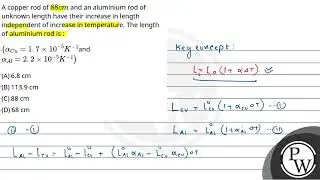 A copper rod of 88cm and an aluminium rod of
unknown length have their increase in length
independent of increase in temperature. The length
of aluminium rod is :
(α_Cu = 1.7 × 10⁻⁵K⁻¹and
α_Al = 2.2 × 10⁻⁵K⁻¹)
(A) 6.8 cm
(B) 113.9 cm
(C) 88 cm
(D) 68 cm
Key concept:
L = L₀(1 + αΔT)
L_cu = L°_cu (1 + α_cu ΔT) —①
L_Al = L°_Al (1 + α_Al ΔT) —⑪
⑪ - ①
L_Al - L_cu = L°_Al - L°_cu + (L°_Al α_Al - L°_cu α_cu) ΔT
PW